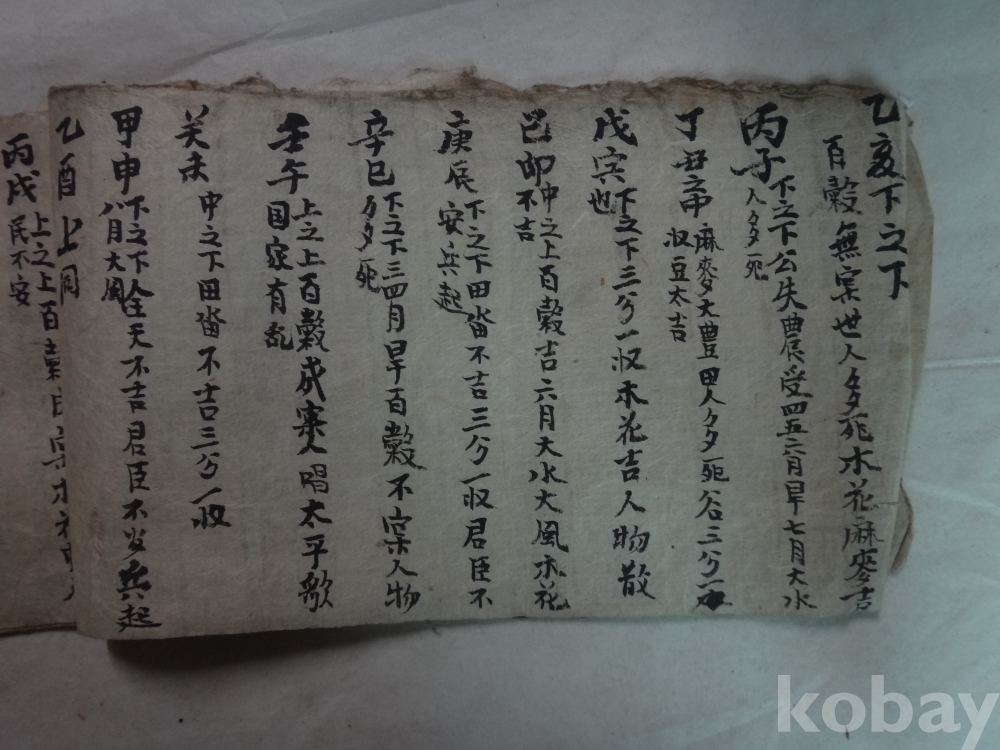 乙亥下之下
百穀無實世人多死木花麻麥吉
丙子下之下公失農受四五六月旱七月大水
人多死
丁丑 麻麥大豊男人多死谷三分一
収豆太吉
戊寅下之下三分一収木花吉人物散
也
己卯中之上百穀吉六月大水大風木花
不吉
庚辰下之下田畓不吉三分一収君臣不
安兵起
辛巳下之下三四月旱百穀不實人物
多死
壬午上之上百穀成實人唱太平歌
国家有乱
癸未中之下田畓不吉三分一収
甲申下之下全天不吉君臣不 兵起
八月大風
乙酉上同
丙戌上之上百
民不安
kobay